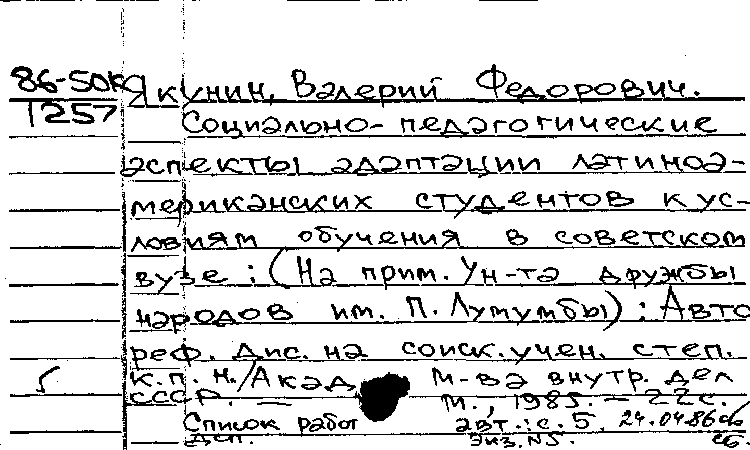 86-50к Якунин, Валерий Федорович.
1257
Социально-педагогические
аспекты адаптации латиноа-
мериканских студентов к ус-
ловиям обучения в советском
вузе : (На прим. Ун-та дружбы
народов им. П. Лумумбы) : Авто
реф. дис. на соиск. учен. степ.
к.п.н./Акад М-ва внутр. дел
СССР. — М., 1985. — 22с.
Список работ авт.: с. 5. 24.04.86
дсп. Экз. N5. сб.